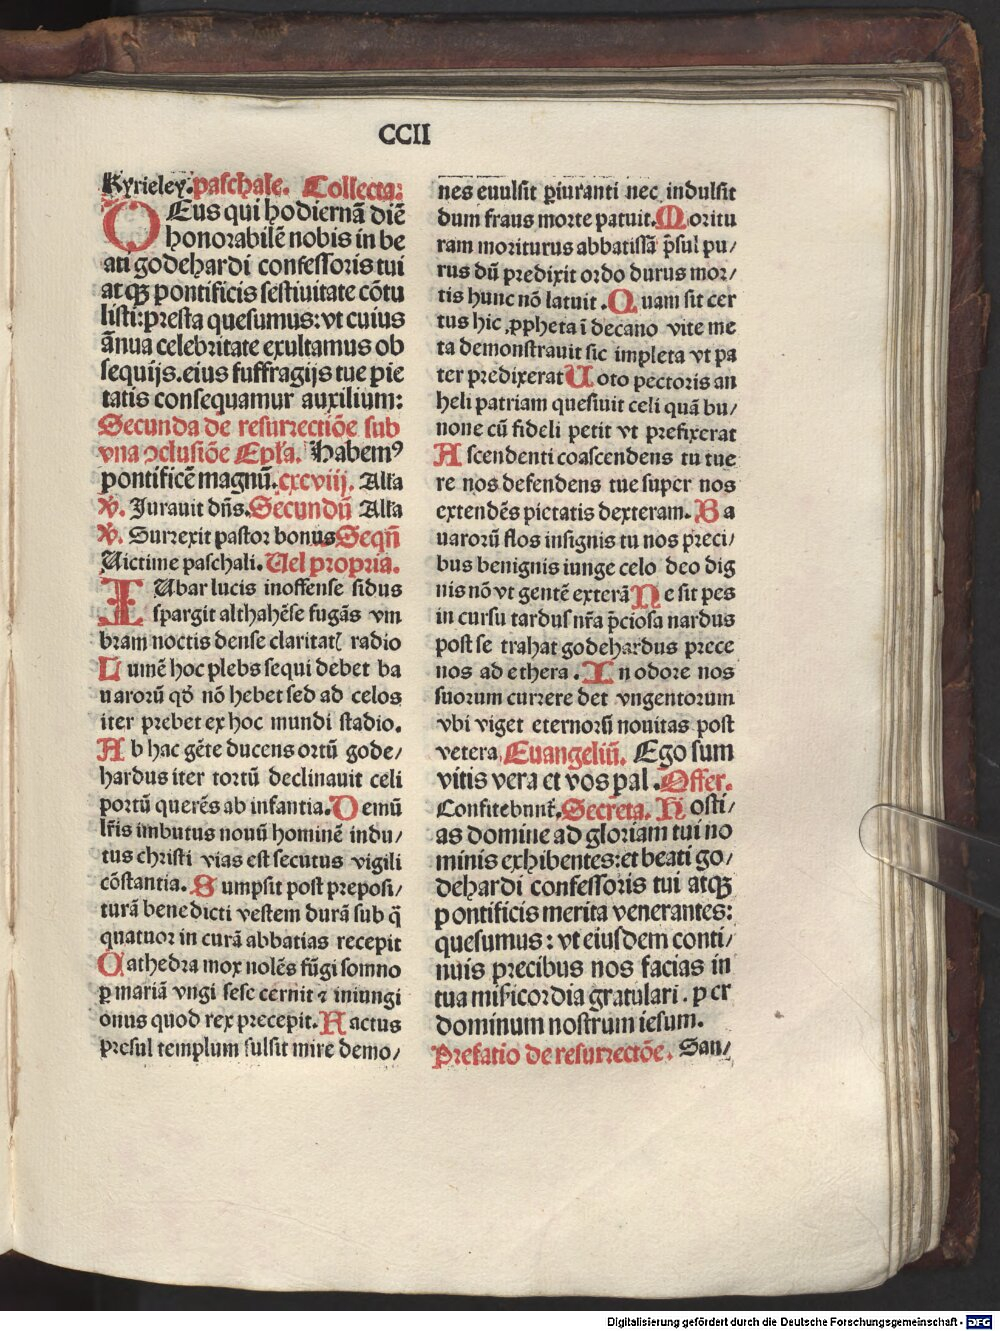 CCII
Kyrieley. paschale. Collecta:
DEus qui hodiernā diē
honorabilē nobis in be
ati godehardi confessoris tui
atqȝ pontificis festiuitate cōtu
listi: presta quesumus: vt cuius
ānua celebritate exultamus ob
sequijs. eius suffragijs tue pie
tatis consequamur auxilium:
Secunda de resurrectiōe sub
vna ↄclusiōe Epła. Habemꝰ
pontificē magnū. cxcviij. Alła
℣. Jurauit dn̄s. Secundū Alła
℣. Surrexit pastor bonus Seqn̄
Uictime paschali. Uel propria.
IUbar lucis inoffense sidus
spargit althahēse fugās vm
bram noctis dense claritatꝭ radio
Lumē hoc plebs sequi debet ba
uarorū qđ nō hebet sed ad celos
iter prebet ex hoc mundi stadio.
Ab hac gēte ducens ortū gode/
hardus iter tortū declinauit celi
portū querēs ab infantia. Demū
lr̄is imbutus nouū hominē indu/
tus christi vias est secutus vigili
cōstantia. Sumpsit post preposi/
turā benedicti vestem durā sub q̄
quatuor in curā abbatias recepit
Cathedra mox nolēs fūgi somno
ꝑ mariā vngi sese cernit ⁊ iniungi
onus quod rex precepit. Nactus
presul templum fulsit mire demo/
nes euulsit ꝑiuranti nec indulsit
dum fraus morte patuit. Moritu
ram moriturus abbatissā p̄sul pu/
rus dū predixit ordo durus mor/
tis hunc nō latuit. Quam sit cer
tus hic ꝓpheta ī decano vite me
ta demonstrauit sic impleta vt pa
ter predixerat Uoto pectoris an
heli patriam quesiuit celi quā bu/
none cū fideli petit vt prefixerat
Ascendenti coascendens tu tue
re nos defendens tue super nos
extendēs pietatis dexteram. Ba
uarorū flos insignis tu nos preci/
bus benignis iunge celo deo dig
nis nō vt gentē exterā Ne sit pes
in cursu tardus nr̄a p̄ciosa nardus
post se trahat godehardus prece
nos ad ethera. In odore nos
suorum currere det vngentorum
vbi viget eternorū nouitas post
vetera. Euangeliū. Ego sum
vitis vera et vos pal. Offer.
Confitebunt̄. Secreta. Hosti/
as domine ad gloriam tui no
minis exhibentes: et beati go/
dehardi confessoris tui atqȝ
pontificis merita venerantes:
quesumus: vt eiusdem conti/
nuis precibus nos facias in
tua misericordia gratulari. per
dominum nostrum iesum.
Prefatio de resurrectōe. San/
Digitalisierung gefördert durch die Deutsche Forschungsgemeinschaft - DFG